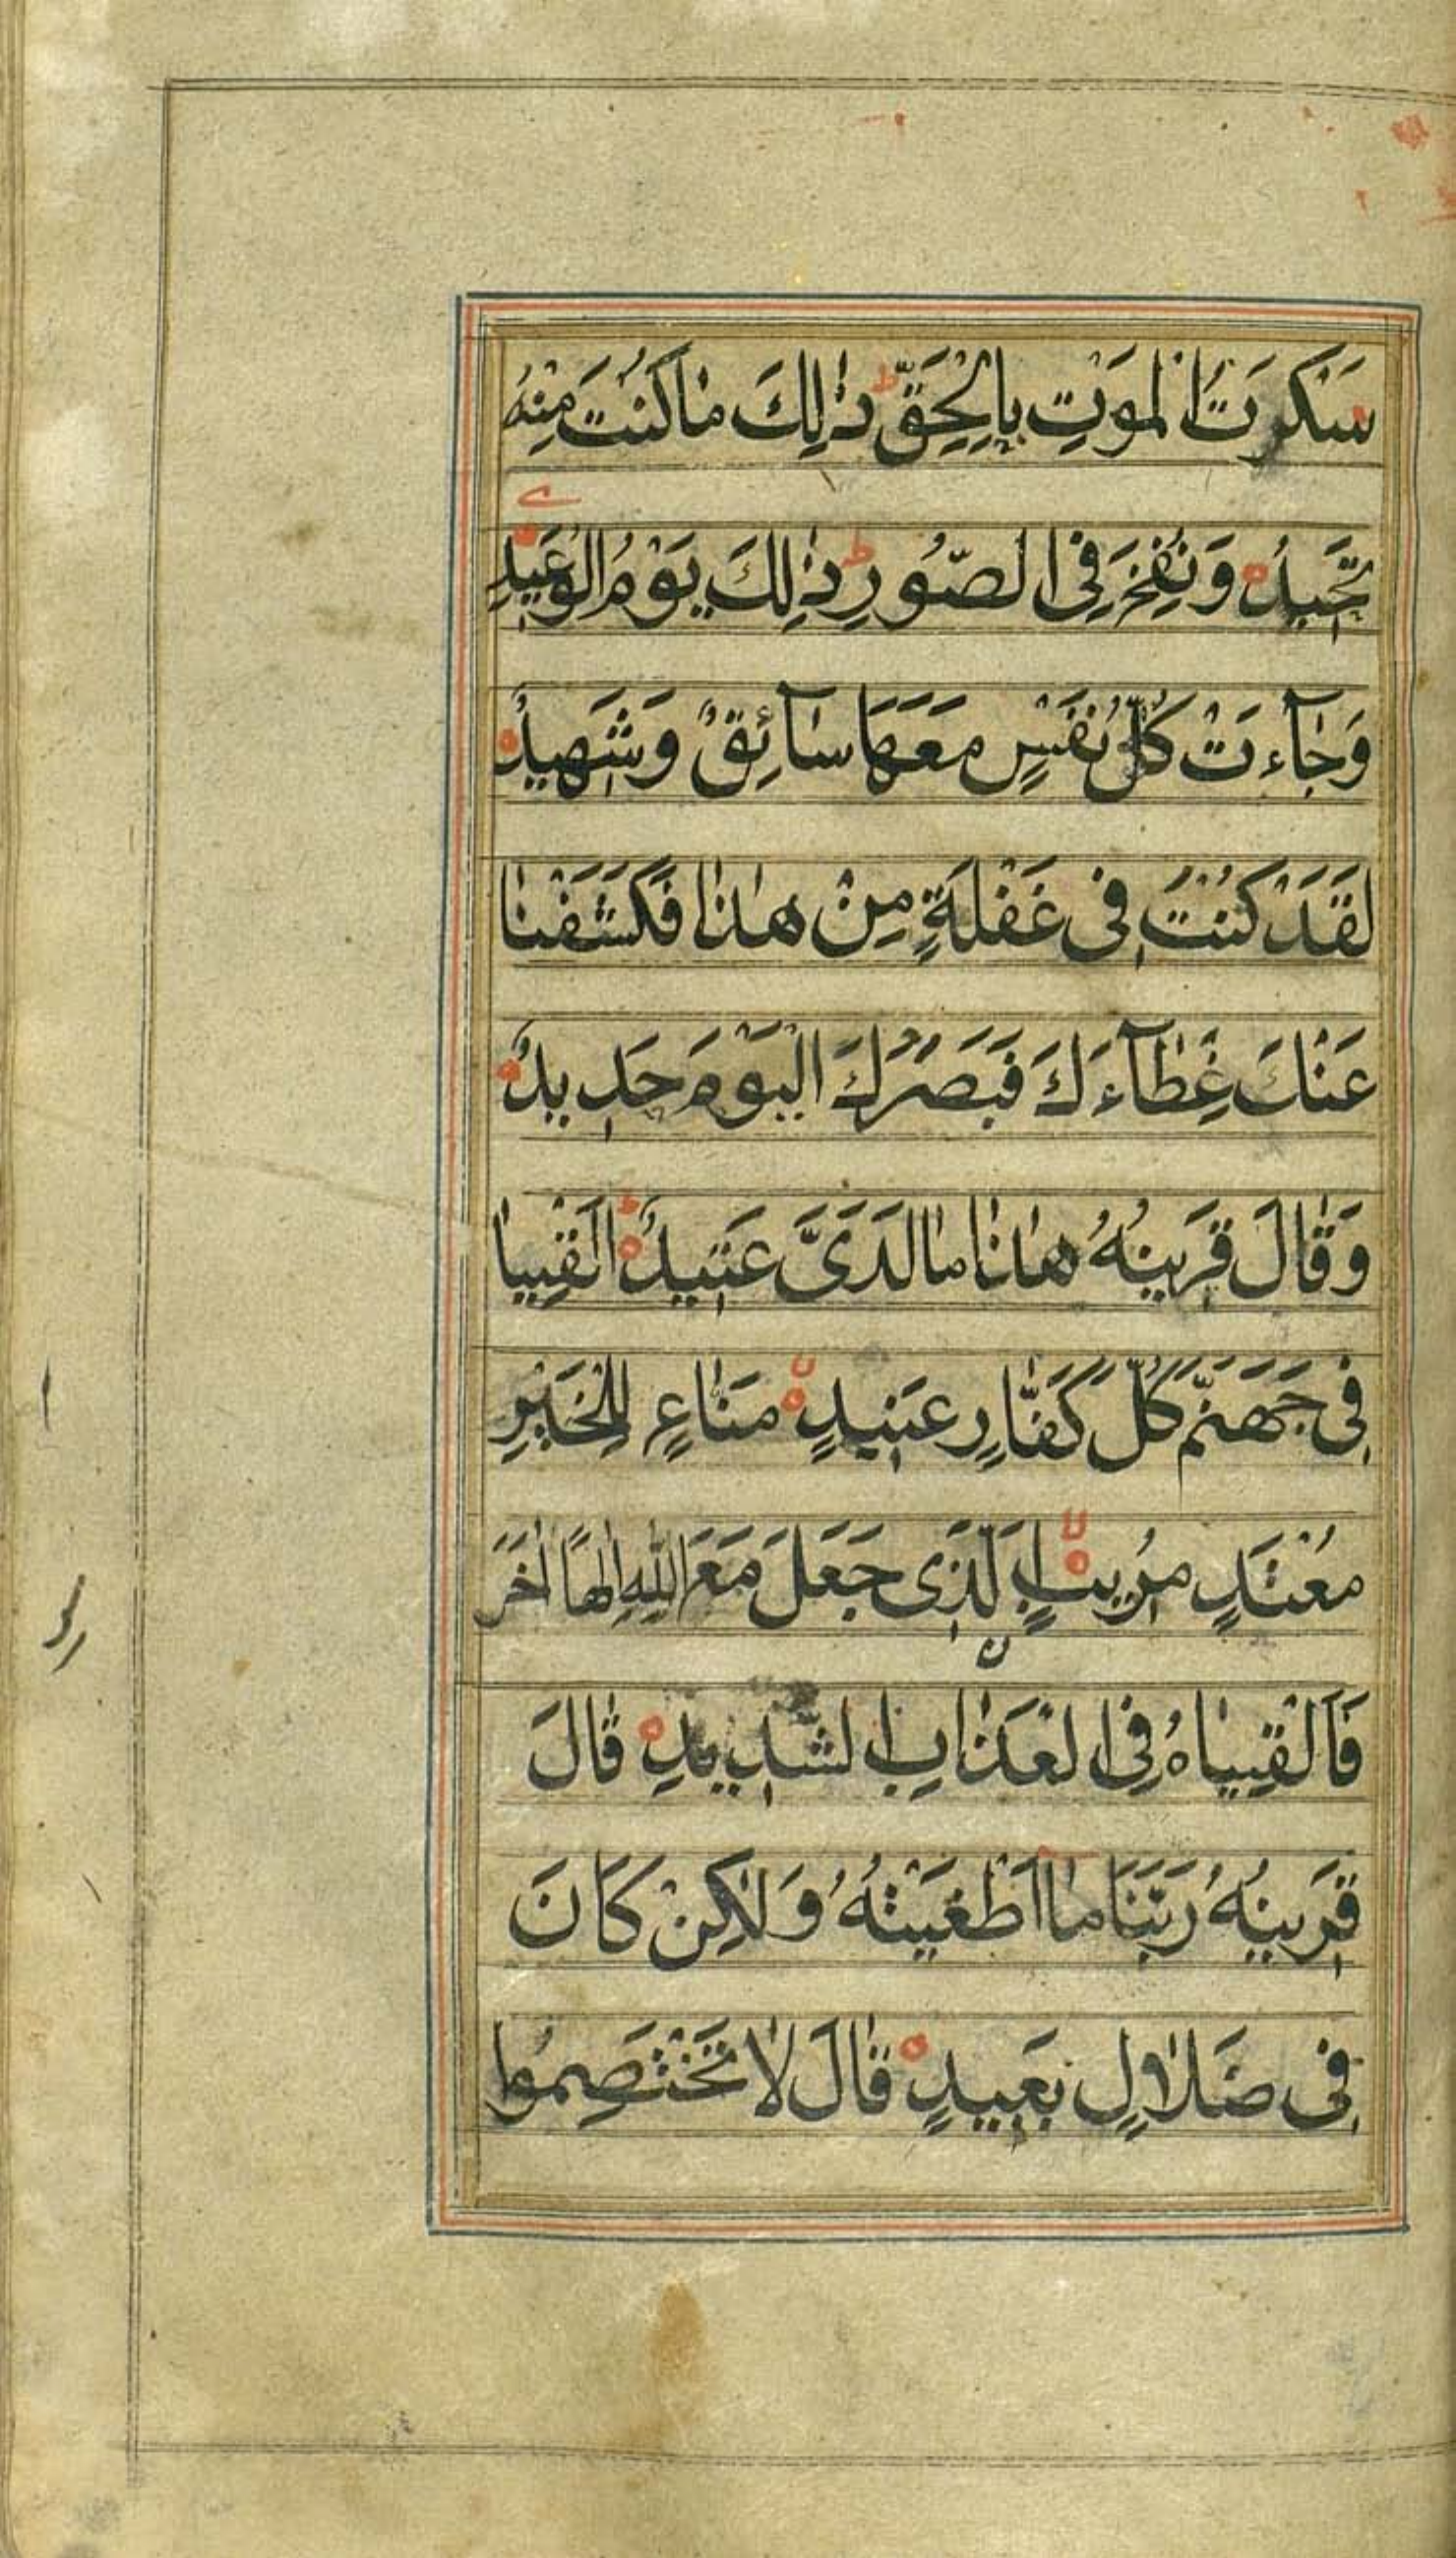 سَكْرَتُ الْمَوْتِ بِالْحَقِّ ط ذٰلِكَ مَا كُنْتَ مِنْهُ
تَحِيدُ ه وَنُفِخَ فِى الصُّورِ ط ذٰلِكَ يَوْمُ الْوَعِيدِ
وَجَآءَتْ كُلُّ نَفْسٍ مَعَهَا سَآئِقٌ وَشَهِيدٌ ه
لَقَدْ كُنْتَ فِى غَفْلَةٍ مِنْ هٰذَا فَكَشَفْنَا
عَنْكَ غِطَآءَكَ فَبَصَرُكَ الْيَوْمَ حَدِيدٌ ه
وَقَالَ قَرِينُهُ هٰذَا مَا لَدَىَّ عَتِيدٌ ه ط اَلْقِيَا
فِى جَهَنَّمَ كُلَّ كَفَّارٍ عَنِيدٍ ه لا مَنَّاعٍ لِلْخَيْرِ
مُعْتَدٍ مُرِيبٍ ه لا الَّذِى جَعَلَ مَعَ اللهِ اِلٰهًا اٰخَرَ
فَاَلْقِيَاهُ فِى الْعَذَابِ الشَّدِيدِ ه قَالَ
قَرِينُهُ رَبَّنَا مَا اَطْغَيْتُهُ وَلٰكِنْ كَانَ
فِى ضَلَالٍ بَعِيدٍ ه قَالَ لَا تَخْتَصِمُوا